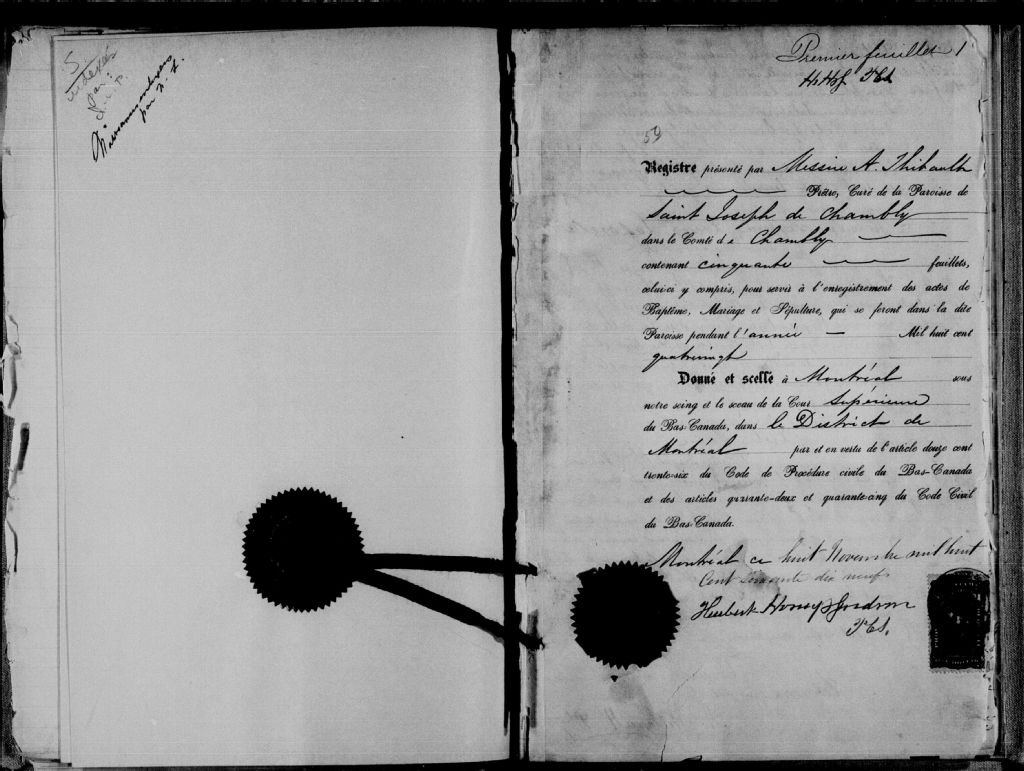 indexés
par
par
Premier feuillet 1
59
Registre présenté par Messire A. Thibault
Prêtre, Curé de la Paroisse de
Saint Joseph de Chambly
dans le Comté de Chambly
contenant cinquante feuillets,
celui-ci y compris, pour servir à l'enregistrement des actes de
Baptême, Mariage et Sépulture, qui se feront dans la dite
Paroisse pendant l'année — Mil huit cent
quatrevingt
Donné et scellé à Montréal sous
notre seing et le sceau de la Cour Supérieure
du Bas-Canada, dans le District de
Montréal par et en vertu de l'article douze cent
trente-six du Code de Procédure civile du Bas-Canada
et des articles quarante-deux et quarante-cinq du Code Civil
du Bas-Canada.
Montréal ce huit Novembre mil huit
Cent soixante dix neuf